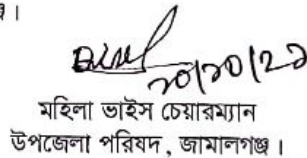 ২০/১০/২১
মহিলা ভাইস চেয়ারম্যান
উপজেলা পরিষদ, জামালগঞ্জ।